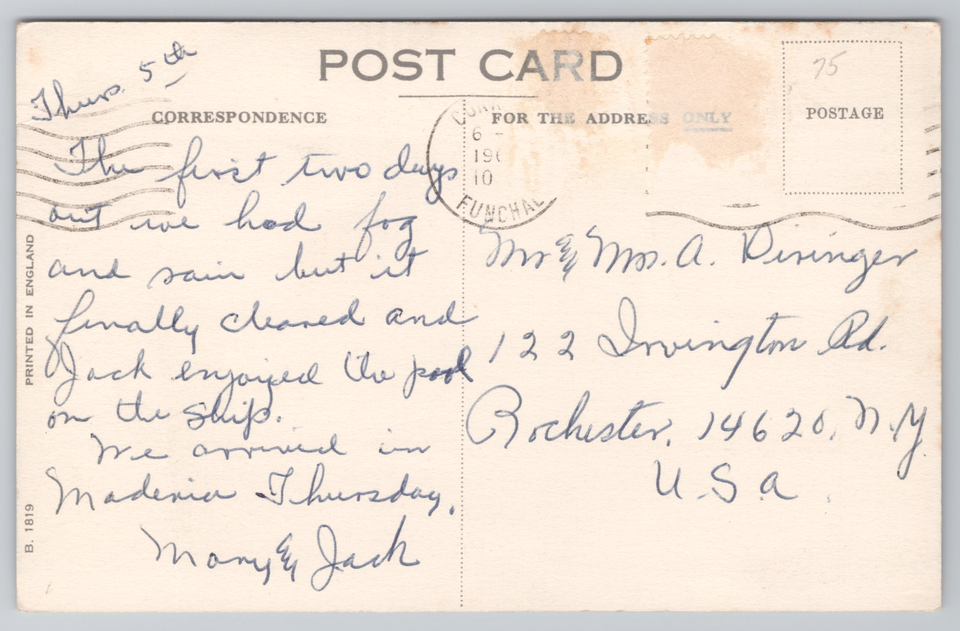 POST CARD
Thurs. 5th
75
CORRESPONDENCE
FOR THE ADDRESS ONLY
POSTAGE
6 -
10
FUNCHAL
The first two days
out we had fog
and rain but it
finally cleared and
Jack enjoyed the pool
on the ship.
We arrived in
Maderia Thursday.
Mary & Jack
Mr & Mrs. A. Dininger
122 Irvington Rd.
Rochester, 14620, N.Y.
U.S.A.
PRINTED IN ENGLAND
B. 1819